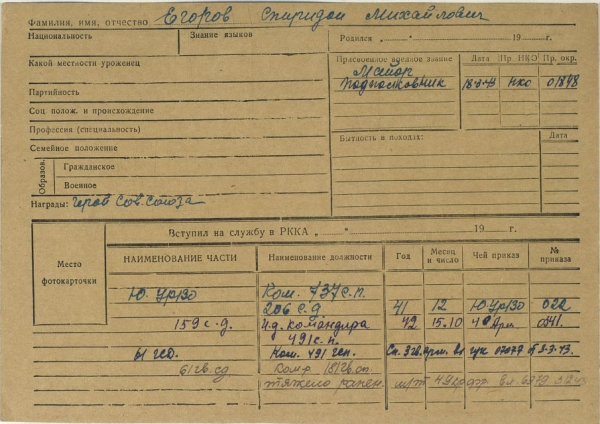 Фамилия, имя, отчество Егоров Спиридон Михайлович
Национальность Знание языков Родился „ “ 19 г.
Какой местности уроженец
Присвоенное военное звание Дата Пр. НКО Пр. окр.
Майор
Подполковник 18-3-43 НКО 01848
Партийность
Соц полож. и происхождение
Профессия (специальность)
Семейное положение
Бытность в походах: Дата
Образов. Гражданское
Военное
Награды: Герой Сов. Союза
Вступил на службу в РККА „ “ 19 г.
Место фотокарточки
НАИМЕНОВАНИЕ ЧАСТИ Наименование должности Год Месяц и число Чей приказ № приказа
Ю. УрВО Ком. 737 с.п.
206 с.д. 41 12 Ю.УрВО 022
159 с.д. И.д. командира 42 15.10 4 Арм. 0341.
491 с.п.
61 гсд. Ком. 491 гсп. 07079 3-3-43.
61 гв. сд Ком-р 181 гв. сп.
тяжело ранен.